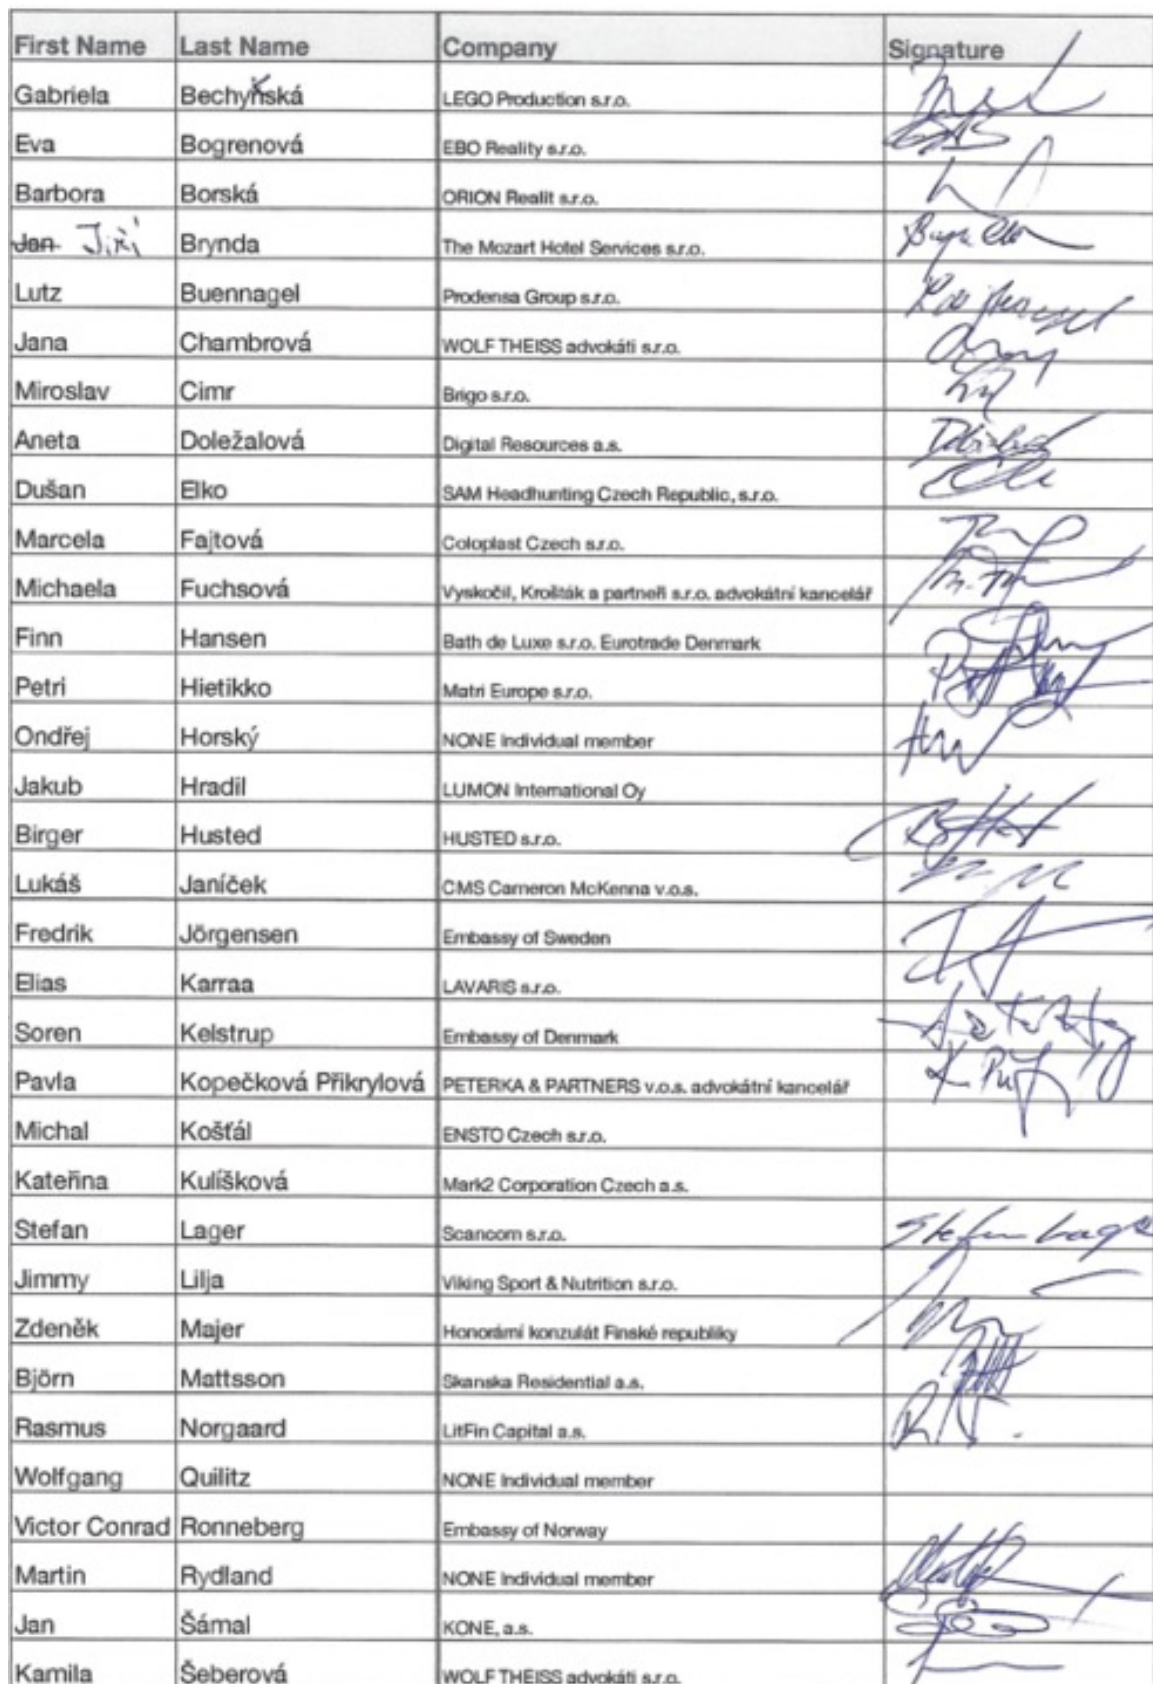 First Name Last Name Company Signature
Gabriela Bechyňská LEGO Production s.r.o.
Eva Bogrenová EBO Reality s.r.o.
Barbora Borská ORION Realit s.r.o.
Jan Jiří Brynda The Mozart Hotel Services s.r.o.
Lutz Buennagel Prodensa Group s.r.o.
Jana Chambrová WOLF THEISS advokáti s.r.o.
Miroslav Cimr Brigo s.r.o.
Aneta Doležalová Digital Resources a.s.
Dušan Elko SAM Headhunting Czech Republic, s.r.o.
Marcela Fajtová Coloplast Czech s.r.o.
Michaela Fuchsová Vyskočil, Krošlák a partneři s.r.o. advokátní kancelář
Finn Hansen Bath de Luxe s.r.o. Eurotrade Denmark
Petri Hietikko Matri Europe s.r.o.
Ondřej Horský NONE Individual member
Jakub Hradil LUMON International Oy
Birger Husted HUSTED s.r.o.
Lukáš Janíček CMS Cameron McKenna v.o.s.
Fredrik Jörgensen Embassy of Sweden
Elias Karraa LAVARIS s.r.o.
Soren Kelstrup Embassy of Denmark
Pavla Kopečková Přikrylová PETERKA & PARTNERS v.o.s. advokátní kancelář
Michal Košťál ENSTO Czech s.r.o.
Kateřina Kulíšková Mark2 Corporation Czech a.s.
Stefan Lager Scancom s.r.o. Stefan Lager
Jimmy Lilja Viking Sport & Nutrition s.r.o.
Zdeněk Majer Honorární konzulát Finské republiky
Björn Mattsson Skanska Residential a.s.
Rasmus Norgaard LitFin Capital a.s.
Wolfgang Quilitz NONE Individual member
Victor Conrad Ronneberg Embassy of Norway
Martin Rydland NONE Individual member
Jan Šámal KONE, a.s.
Kamila Šeberová WOLF THEISS advokáti s.r.o.